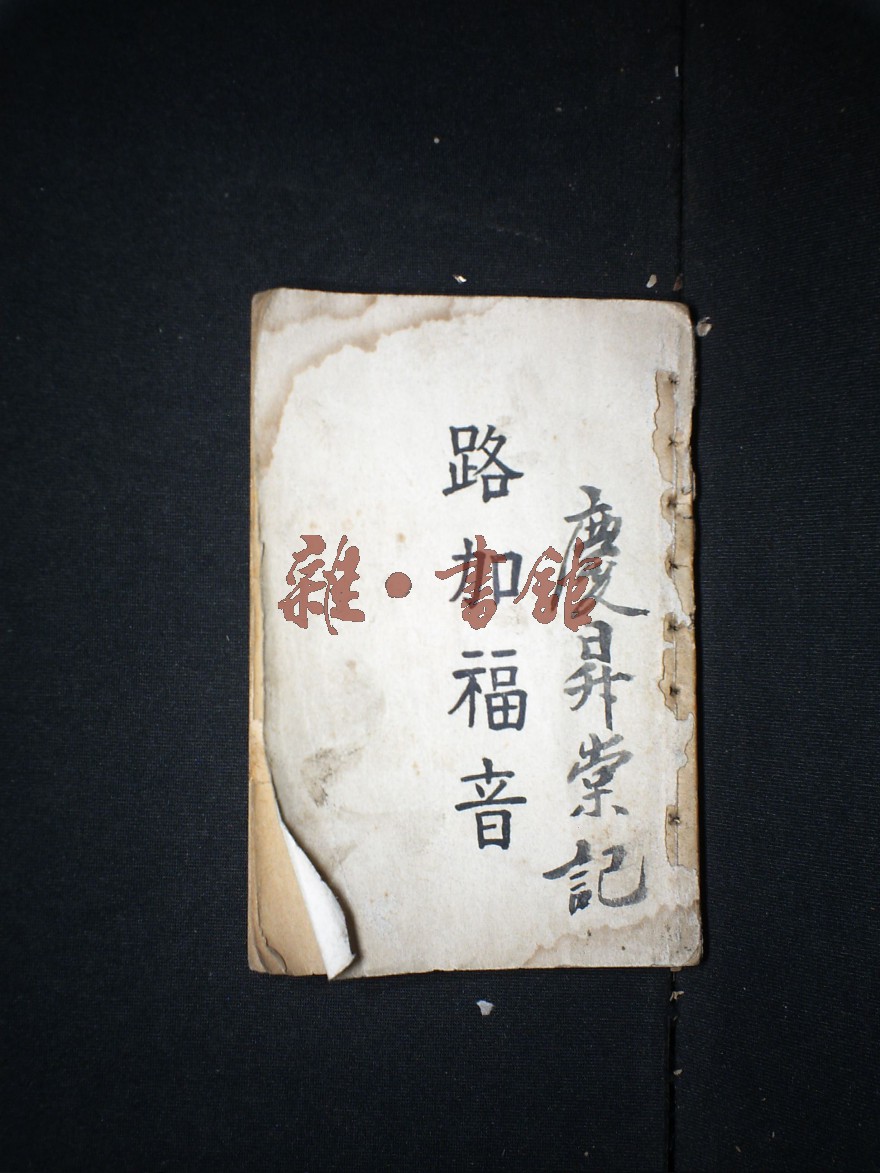 慶昇棠記
路加福音
雜·書館